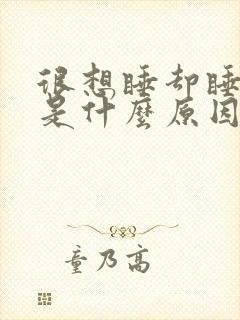 很想睡却睡
是什麼原因
童乃高